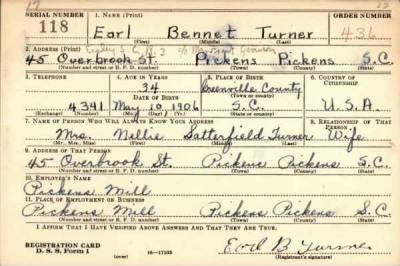 SERIAL NUMBER 1. NAME (Print) ORDER NUMBER
118 Earl Bennet Turner 436
(First) (Middle) (Last)
2. ADDRESS (Print) Easley S.C. #3
45 Overbrook St. Pickens Pickens S.C.
(Number and street or R. F. D. number) (Town) (County) (State)
3. TELEPHONE 4. AGE IN YEARS 5. PLACE OF BIRTH 6. COUNTRY OF CITIZENSHIP
34 Greenville County
DATE OF BIRTH (Town or county)
4341 May 10, 1906 S.C. U.S.A.
(Exchange) (Number) (Mo.) (Day) (Yr.) (State or country)
7. NAME OF PERSON WHO WILL ALWAYS KNOW YOUR ADDRESS 8. RELATIONSHIP OF THAT PERSON
Mrs. Nellie Satterfield Turner Wife
(Mr., Mrs., Miss) (First) (Middle) (Last)
9. ADDRESS OF THAT PERSON
45 Overbrook St. Pickens Pickens S.C.
(Number and street or R. F. D. number) (Town) (County) (State)
10. EMPLOYER'S NAME
Pickens Mill
11. PLACE OF EMPLOYMENT OR BUSINESS
Pickens Mill Pickens Pickens S.C.
(Number and street or R. F. D. number) (Town) (County) (State)
I AFFIRM THAT I HAVE VERIFIED ABOVE ANSWERS AND THAT THEY ARE TRUE.
REGISTRATION CARD
D. S. S. Form 1 (over) 16—17105 Earl B Turner
(Registrant's signature)